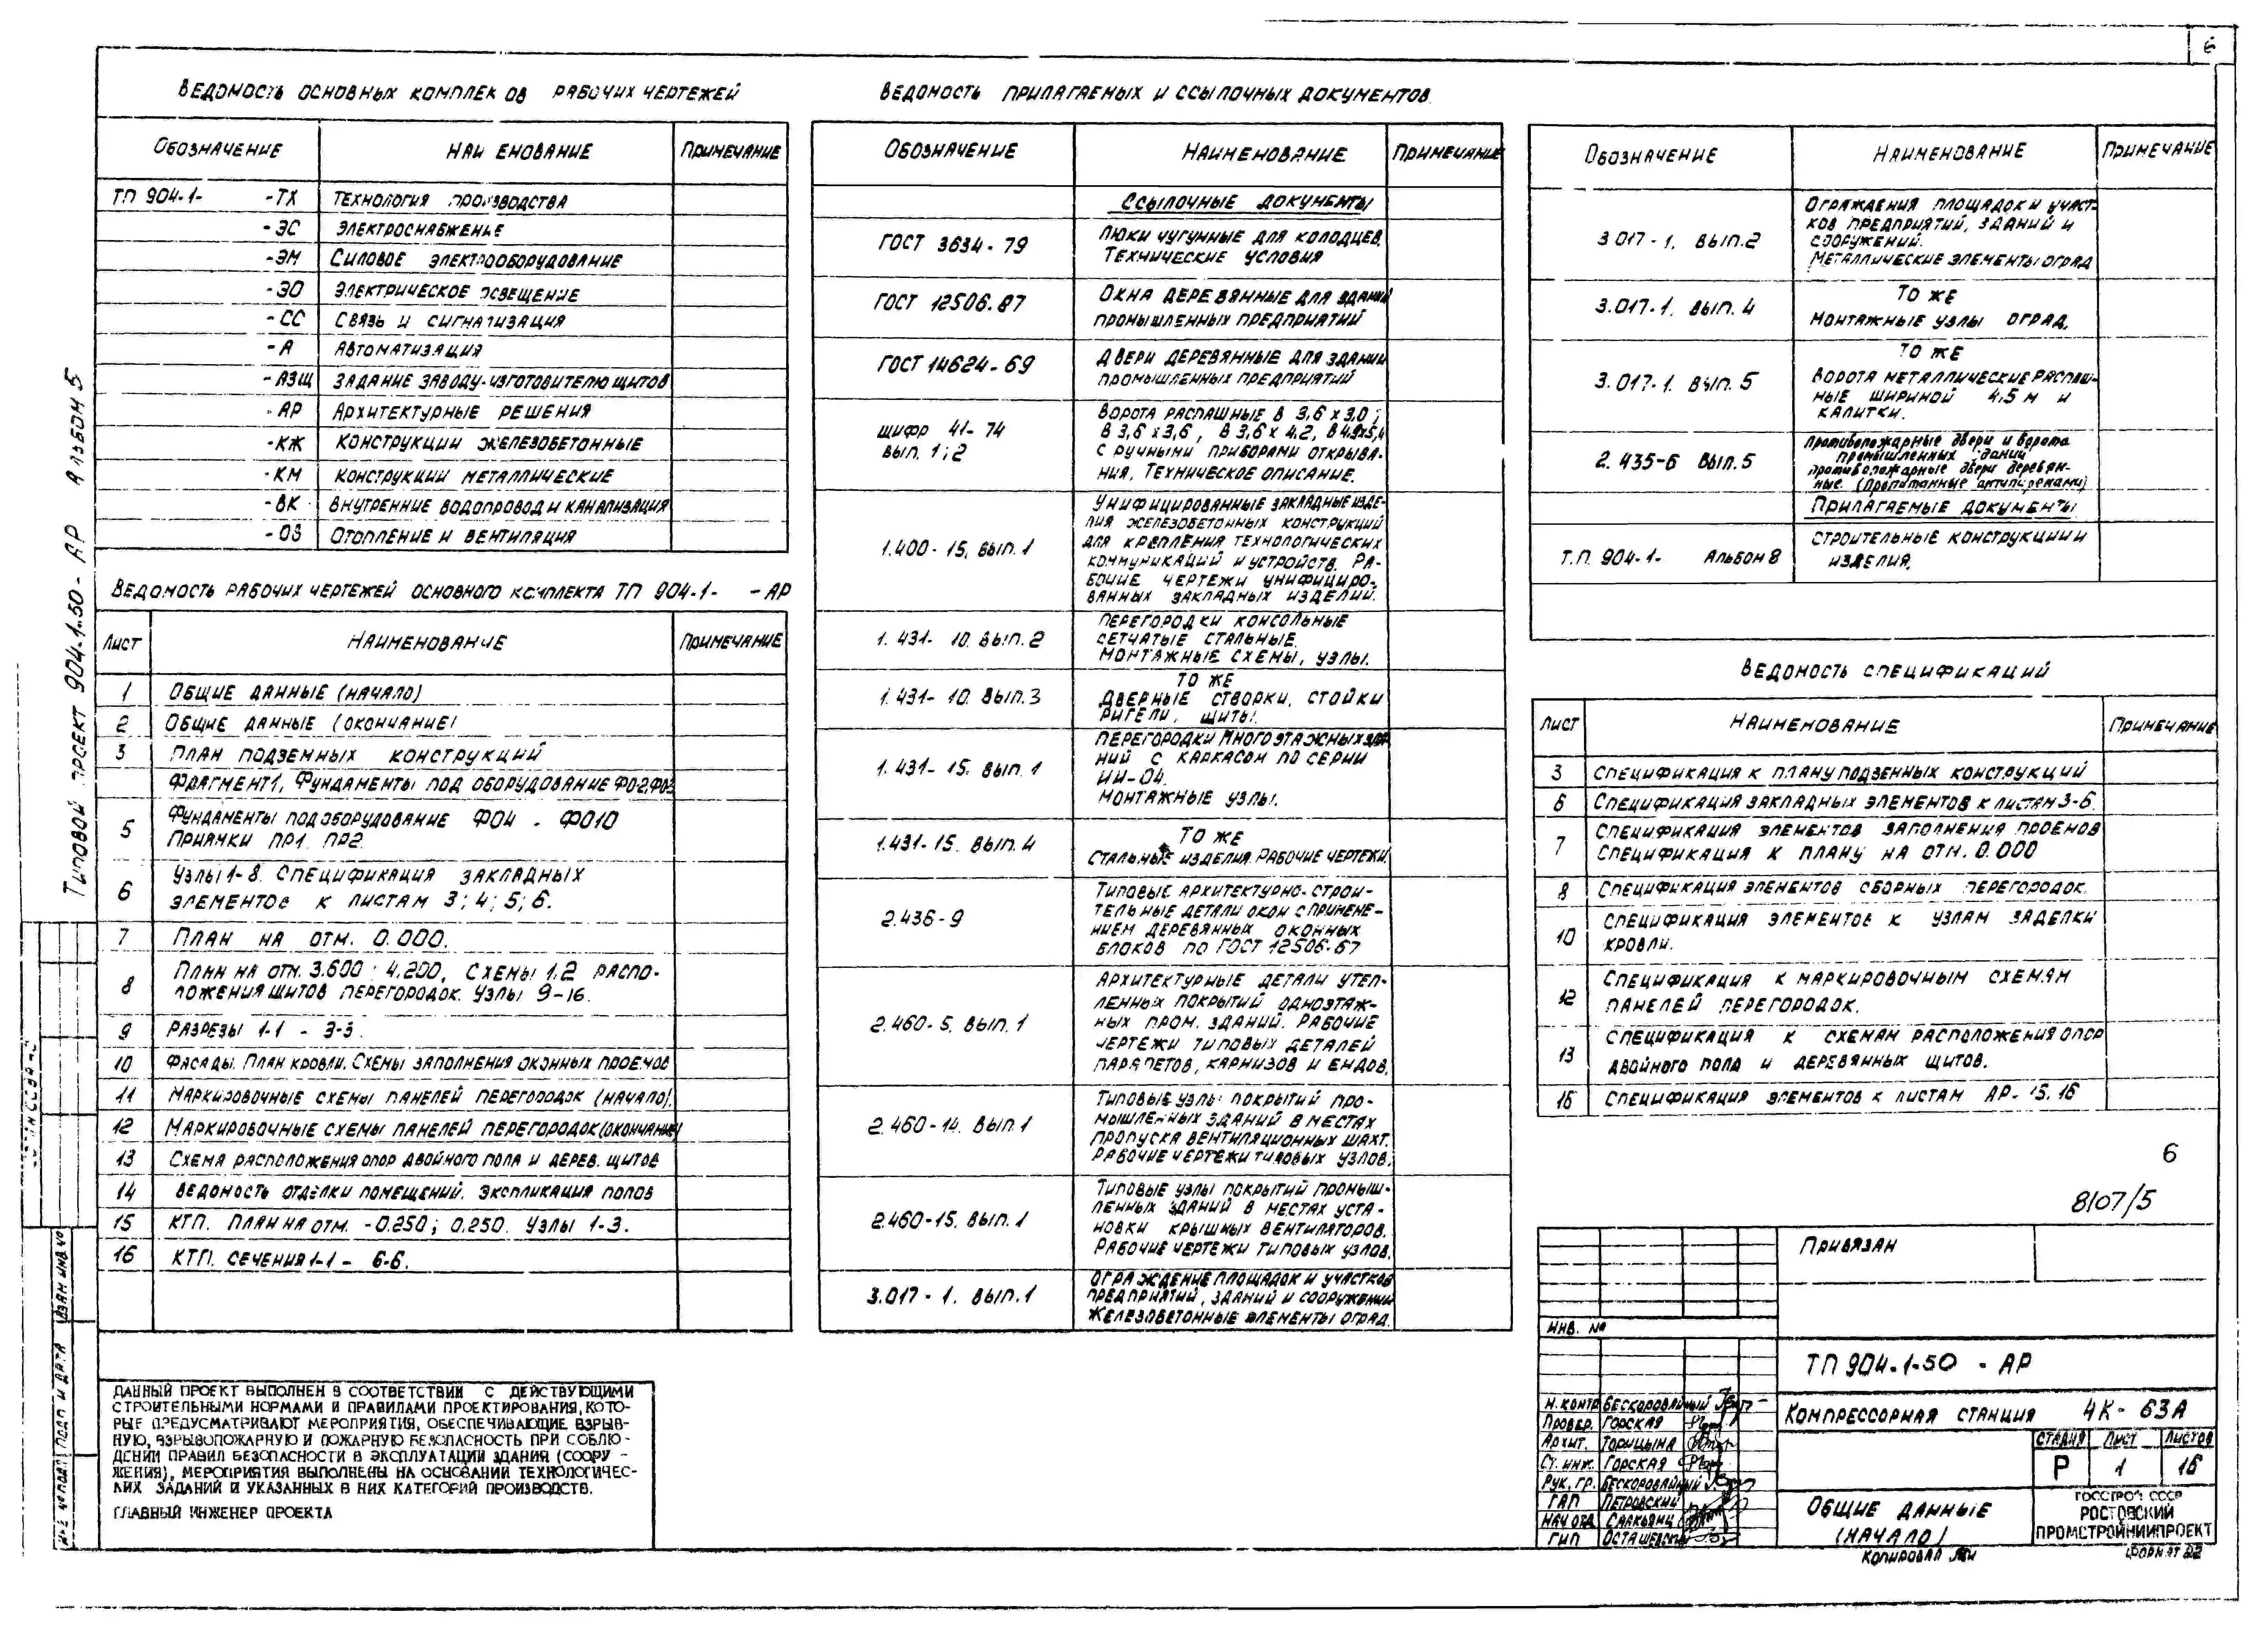 6
Ведомость основных комплек ов рабочих чертежей
Обозначение Наи енование Примечание
ТП 904-1- -ТХ Технология производства
-ЭС Электроснабжение
-ЭМ Силовое электрооборудование
-ЭО Электрическое освещение
-СС Связь и сигнализация
-А Автоматизация
-АЗЩ Задание заводу-изготовителю щитов
-АР Архитектурные решения
-КЖ Конструкции железобетонные
-КМ Конструкции металлические
-ВК Внутренние водопровод и канализация
-ОВ Отопление и вентиляция
Ведомость рабочих чертежей основного комплекта ТП 904-1- -АР
Лист Наименование Примечание
1 Общие данные (начало)
2 Общие данные (окончание)
3 План подземных конструкций
Фрагмент 1, Фундаменты под оборудование ФО2,ФО3
5 Фундаменты под оборудование ФО4 - ФО10
Приямки ПР1 ПР2
6 Узлы 1-8. Спецификация закладных
элементов к листам 3; 4; 5; 6.
7 План на отм. 0.000.
8 План на отм. 3.600; 4.200, Схемы 1.2 распо-
ложения щитов перегородок. Узлы 9-16.
9 Разрезы 1-1 - 3-3.
10 Фасады. План кровли. Схемы заполнения оконных проемов
11 Маркировочные схемы панелей перегородок (начало).
12 Маркировочные схемы панелей перегородок (окончание)
13 Схема расположения опор двойного пола и дерев. щитов
14 Ведомость отделки помещений. Экспликация полов
15 КТП. План на отм. -0.250; 0.250. Узлы 1-3.
16 КТП. Сечения 1-1 - 6-6.
Данный проект выполнен в соответствии с действующими
строительными нормами и правилами проектирования, кото-
рые предусматривают мероприятия, обеспечивающие взрыв-
ную, взрывопожарную и пожарную безопасность при соблю-
дении правил безопасности в эксплуатации здания (соору -
жения), мероприятия выполнены на основании технологичес-
ких заданий и указанных в них категорий производств.
Главный инженер проекта
Ведомость прилагаемых и ссылочных документов.
Обозначение Наименование Примечание
Ссылочные документы
ГОСТ 3634-79 Люки чугунные для колодцев.
Технические условия
ГОСТ 12506.67 Окна деревянные для зданий
промышленных предприятий
ГОСТ 14624-69 Двери деревянные для зданий
промышленных предприятий
шифр 41-74
вып. 1;2
Ворота распашные В 3,6 х 3,0;
В 3,6 х 3,6, В 3,6 х 4.2, В 4.8х5,4
с ручными приборами открыва-
ния. Техническое описание.
1.400-15, вып.1 Унифицированные закладные изде-
лия железобетонных конструкций
для крепления технологических
коммуникаций и устройств. Ра-
бочие чертежи унифициро-
ванных закладных изделий.
1. 431- 10. вып.2 Перегородки консольные
сетчатые стальные.
Монтажные схемы, узлы.
1. 431- 10. вып.3 То же
Дверные створки, стойки
ригели, щиты.
1. 431- 15. вып. 1 Перегородки многоэтажных зда-
ний с каркасом по серии
ИИ-04.
Монтажные узлы.
1.431-15. вып.4 То же
Стальные изделия. Рабочие чертежи
2.436-9 Типовые архитектурно-строи-
тельные детали окон с примене-
нием деревянных оконных
блоков по ГОСТ 12506-67
2.460-5. вып.1 Архитектурные детали утеп-
ленных покрытий одноэтаж-
ных пром. зданий. Рабочие
чертежи типовых деталей
парапетов, карнизов и ендов.
2.460-14. вып.1 Типовые узлы покрытий про-
мышленных зданий в местах
пропуска вентиляционных шахт.
Рабочие чертежи типовых узлов.
2.460-15. вып.1 Типовые узлы покрытий промыш-
ленных зданий в местах уста-
новки крышных вентиляторов.
Рабочие чертежи типовых узлов.
3.017-1. вып.1 Ограждение площадок и участков
предприятий, зданий и сооружений
Железобетонные элементы оград.
Обозначение Наименование Примечание
3.017-1. вып.2 Ограждения площадок и участ-
ков предприятий, зданий и
сооружений.
Металлические элементы оград
3.017-1. вып.4 То же
Монтажные узлы оград.
3.017-1. вып.5 То же
Ворота металлические распаш-
ные шириной 4,5 м и
калитки.
2. 435-6 вып.5 Противопожарные двери и ворота
промышленных зданий
противопожарные двери деревян-
ные. (Пропитанные антипиренами)
Прилагаемые документы
Т.П. 904-1- Альбом 8 Строительные конструкции и
изделия.
Ведомость спецификаций
Лист Наименование Примечание
3 Спецификация к плану подземных конструкций
6 Спецификация закладных элементов к листам 3-6.
7 Спецификация элементов заполнения проемов
Спецификация к плану на отм. 0.000
8 Спецификация элементов сборных перегородок.
10 Спецификация элементов к узлам заделки
кровли.
12 Спецификация к маркировочным схемам
панелей перегородок.
13 Спецификация к схемам расположения опор
двойного пола и деревянных щитов.
16 Спецификация элементов к листам АР- 15, 16
6
8107/5
Привязан
Инв. №
ТП 904.1-50 - АР
Н.контр Бескоровайный
Провер. Горская
Архит. Торицына
Ст. инж. Горская
Рук. гр. Бескоровайный
ГАП Петровский
Нач отд Саакьянц
ГИП
Компрессорная станция 4К-63А
Стадия Лист Листов
Р 1 16
Общие данные
(начало)
Госстрой СССР
Ростовский
Промстройниипроект
Копировал
Формат 22
Типовой проект 904-1-50 - АР Альбом 5
Взам инв. №
Подп и дата
Инв № подл